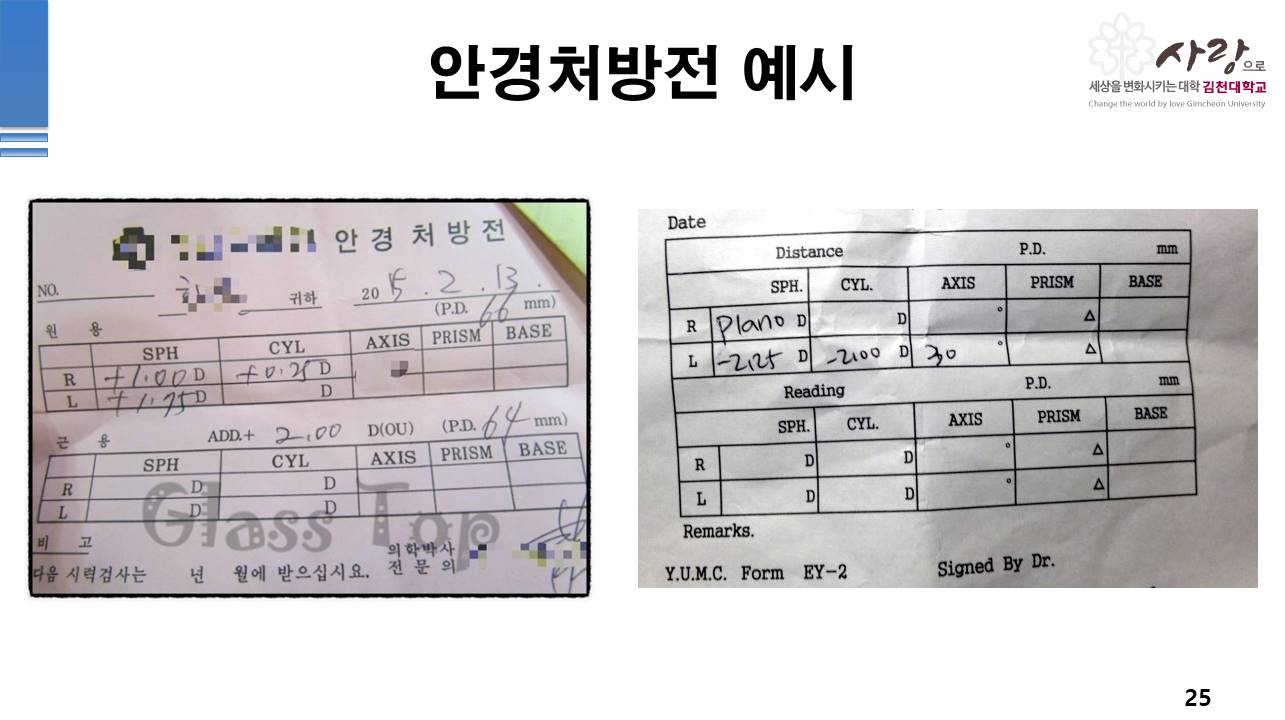 안경처방전 예시
사랑으로
세상을 변화시키는 대학 김천대학교
Change the world by love Gimcheon University
안 경 처 방 전
NO. 귀하 2015 . 2 . 13 .
(P.D. 66 mm)
원 용
SPH CYL AXIS PRISM BASE
R +1.00 D +0.25 D
L +1.75 D D
근 용 ADD.+ 2.00 D(OU) (P.D. 64 mm)
SPH CYL AXIS PRISM BASE
R D D
L D D
Glass Top
비 고
다음 시력검사는 년 월에 받으십시요.
의학박사
전 문 의
Date
Distance P.D. mm
SPH. CYL. AXIS PRISM BASE
R plano D D ° △
L -2.25 D -2.00 D 30 ° △
Reading P.D. mm
SPH. CYL. AXIS PRISM BASE
R D D ° △
L D D ° △
Remarks.
Y.U.M.C. Form EY-2 Signed By Dr.
25